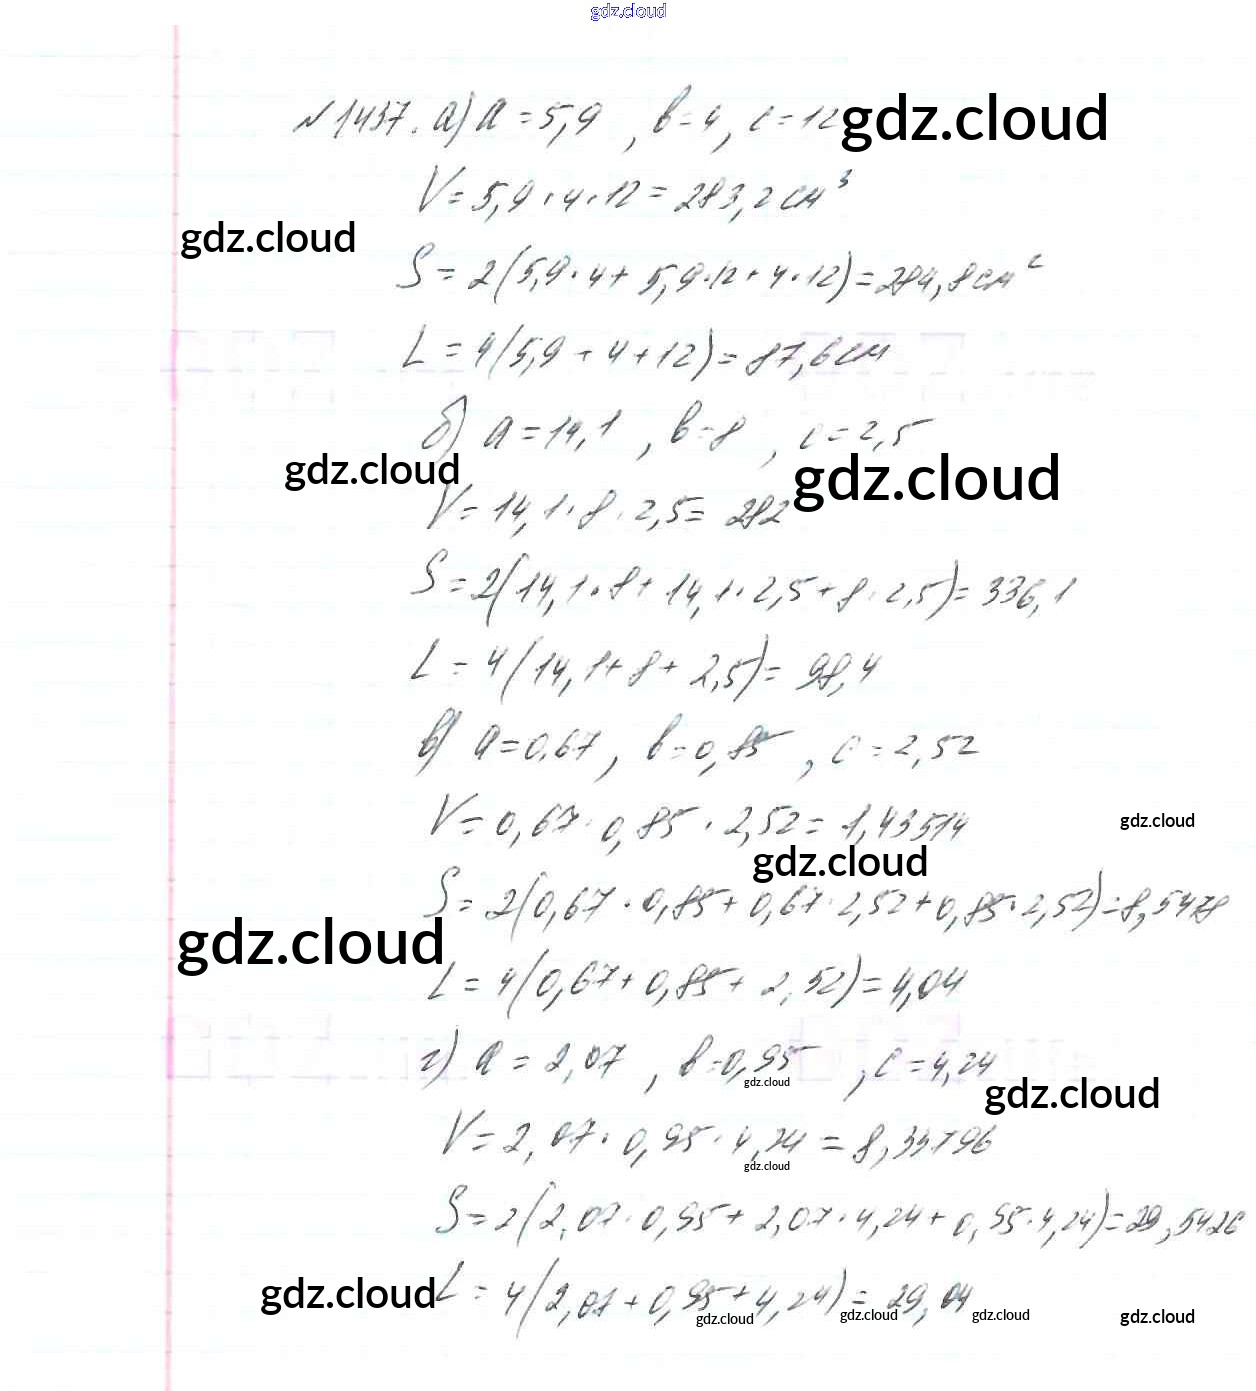 gdz.cloud
№1437. а) a = 5,9 , b = 4, c = 12 gdz.cloud
V = 5,9 · 4 · 12 = 283,2 см³
gdz.cloud
S = 2(5,9 · 4 + 5,9 · 12 + 4 · 12) = 284,8 см²
L = 4(5,9 + 4 + 12) = 87,6 см
б) a = 14,1 , b = 8 , c = 2,5
gdz.cloud gdz.cloud
V = 14,1 · 8 · 2,5 = 282
S = 2(14,1 · 8 + 14,1 · 2,5 + 8 · 2,5) = 336,1
L = 4(14,1 + 8 + 2,5) = 98,4
в) a = 0,67 , b = 0,85 , c = 2,52
V = 0,67 · 0,85 · 2,52 = 1,43514 gdz.cloud
gdz.cloud
S = 2(0,67 · 0,85 + 0,67 · 2,52 + 0,85 · 2,52) = 8,5478
gdz.cloud
L = 4(0,67 + 0,85 + 2,52) = 4,04
г) a = 2,07 , b = 0,95 , c = 4,24
gdz.cloud gdz.cloud
V = 2,07 · 0,95 · 4,24 =
gdz.cloud
S = 2(2,07 · 0,95 + 2,07 · 4,24 + 0,95 · 4,24) = 29,5426
gdz.cloud L = 4(2,07 + 0,95 + 4,24) = 29,04
gdz.cloud gdz.cloud gdz.cloud gdz.cloud